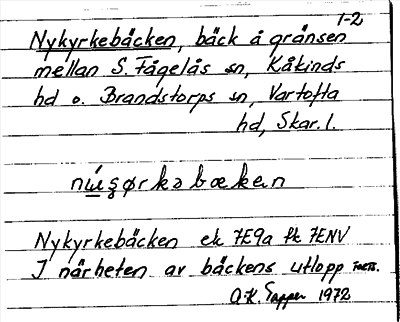 1-2
Nykyrkebäcken, bäck å gränsen
mellan S. Fågelås sn, Kåkinds
hd o. Brandstorps sn, Vartofta
hd, Skar. l.
Nykyrkebäcken ek 7E9a fk 7ENV
I närheten av bäckens utlopp
A-K. Tapper 1972